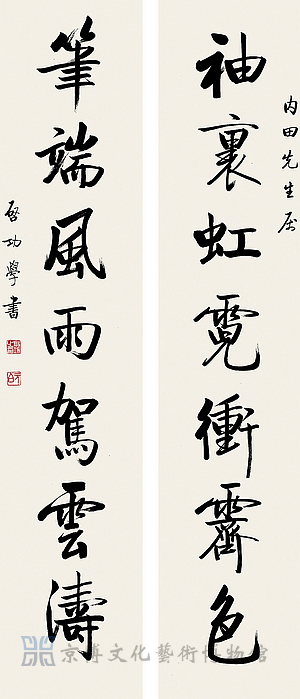 内田先生属
袖裏虹霓衝霽色
筆端風雨駕雲濤
啓功學書
京博文化藝術博物館